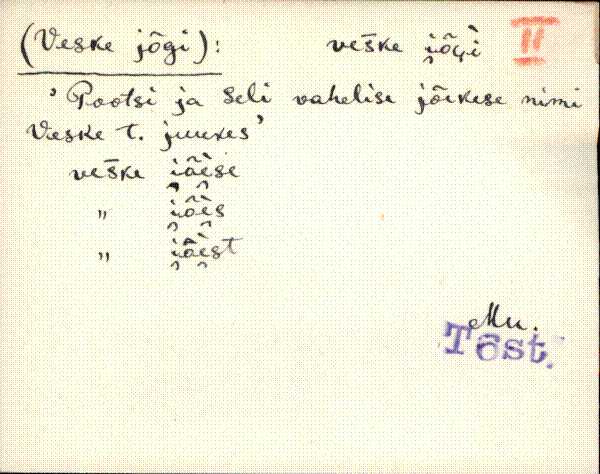 (Veske jõgi): veske i̯õɢi II
'Pootsi ja Seli vahelise jõekese nimi
Veske t. juures'
veske i̯õe̯se
„ i̯õe̯s
„ i̯õe̯st
Mu.
Tõst.